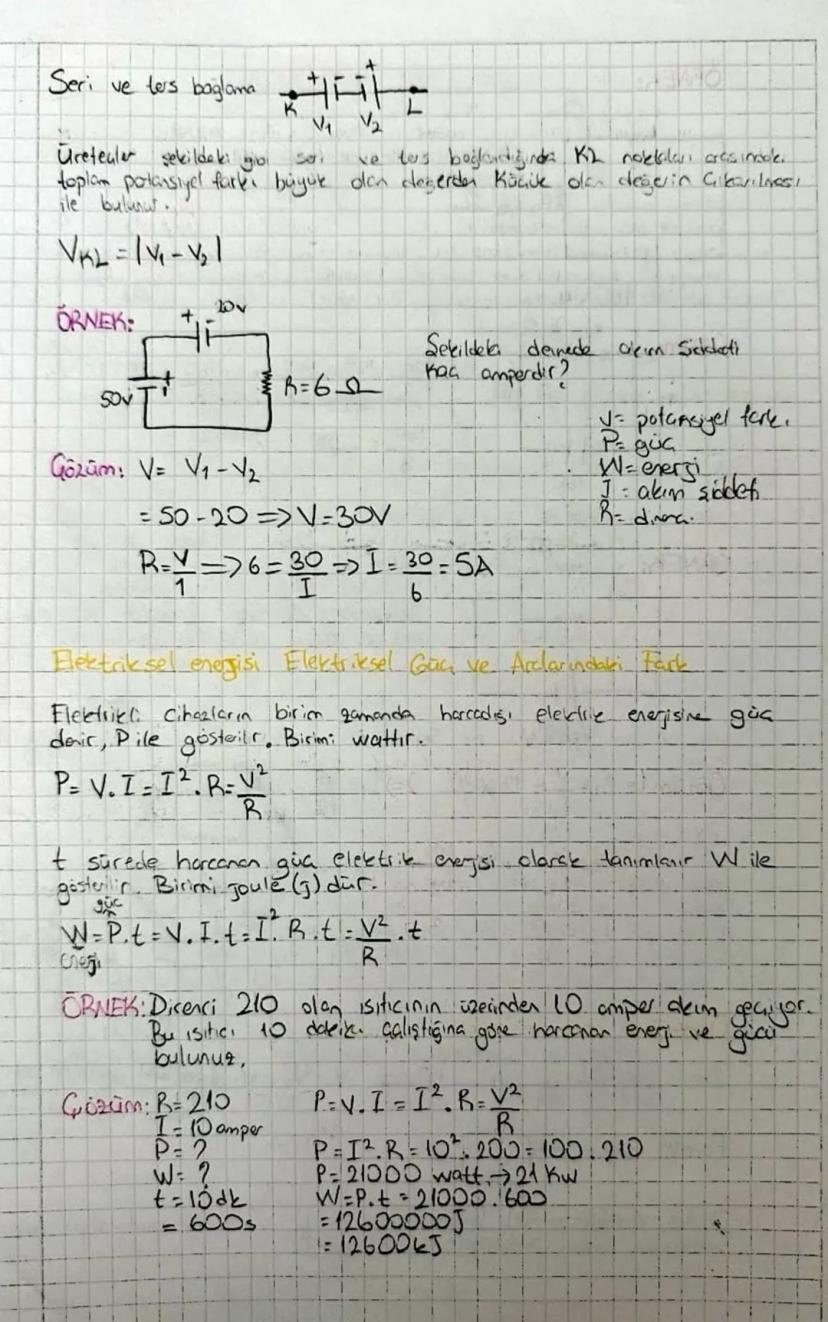 Seri ve ters bağlama
+ +
K V₁ V₂ L
Üreteçler şekildeki gibi seri ve ters bağlandığında KL noktaları arasındaki
toplam potansiyel farkı büyük olan değerden küçük olan değerin çıkarılması
ile bulunur.
V_KL = |V₁ - V₂|
ÖRNEK:
+ - 20v
50v +
R = 6 Ω
Şekildeki devrede akım şiddeti
kaç amperdir?
V = potansiyel farkı
P = güç
W = enerji
I = akım şiddeti
R = direnç
Çözüm: V = V₁ - V₂
= 50 - 20 => V = 30V
R = V/1 => 6 = 30/I => I = 30/6 = 5A
Elektriksel enerjisi Elektriksel Güç ve Aralarındaki Fark
Elektrikli cihazların birim zamanda harcadığı elektrik enerjisine güç
denir, P ile gösterilr. Birimi wattır.
P = V.I = I².R = V²/R
t sürede harcanan güç elektrik enerjisi olarak tanımlanır W ile
gösterilir. Birimi joule (j) dür.
güç
W = P.t = V.I.t = I².R.t = V²/R .t
Enerji
ÖRNEK: Direnci 210 olan ısıtıcının üzerinden 10 amper akım geçiyor.
Bu ısıtıcı 10 dakika çalıştığına göre harcanan enerji ve gücü
bulunuz.
Çözüm: R = 210
I = 10 amper
P = ?
W = ?
t = 10 dk
= 600s
P = V.I = I².R = V²/R
P = I².R = 10².200 = 100.210
P = 21000 watt → 21 Kw
W = P.t = 21000.600
= 12600000J
= 12600kJ